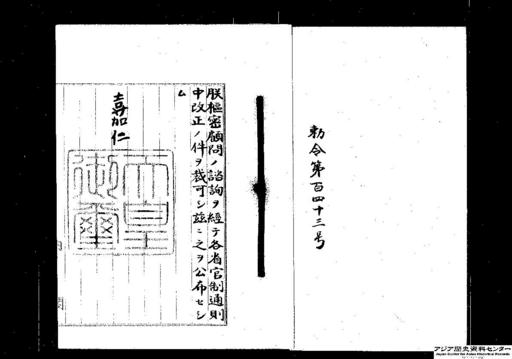 勅令第百四十三号
朕樞密顧問ノ諮詢ヲ経テ各省官制通則
中改正ノ件ヲ裁可シ茲ニ之ヲ公布セシ
ム
嘉仁
天皇
御璽
アジア歴史資料センター
Japan Center for Asian Historical Records